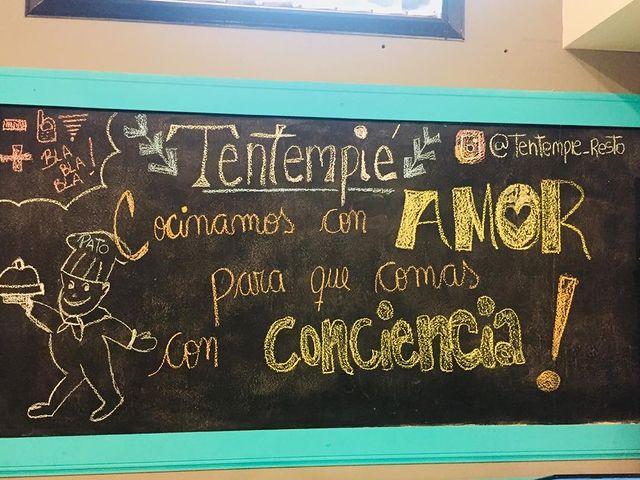 Tentempié
@Tentempie_Resto
- +
BLA
BLA
BLA!
PATO
Cocinamos con AMOR
para que comas
con conciencia!